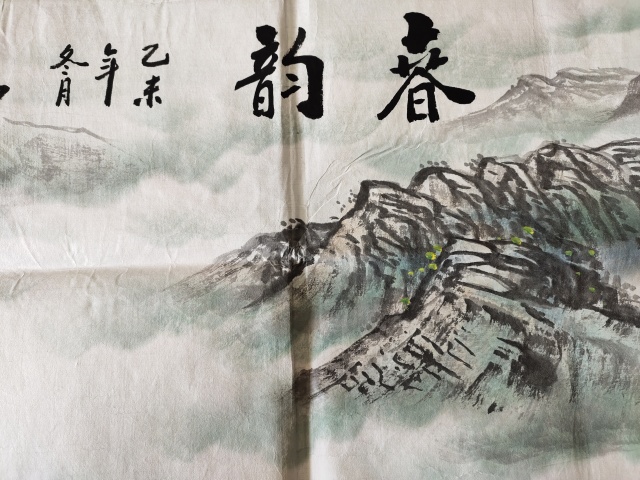 春韵
乙未
年
冬月